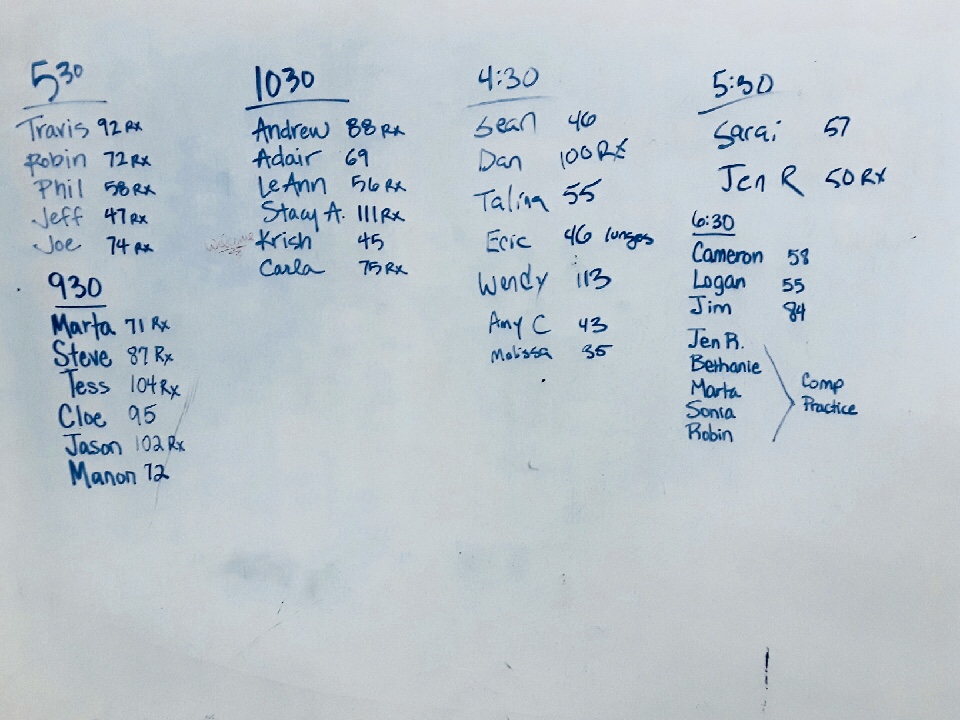 530
Travis 92 Rx
Robin 72 Rx
Phil 58 Rx
Jeff 47 Rx
Joe 74 Rx
930
Marta 71 Rx
Steve 87 Rx
Tess 104 Rx
Cloe 95
Jason 102 Rx
Manon 72
1030
Andrew 88 Rx
Adair 69
LeAnn 56 Rx
Stacy A. 111 Rx
Krish 45
Carla 75 Rx
4:30
Sean 46
Dan 100 RX
Talina 55
Eric 46 lunges
Wendy 113
Amy C 43
Melissa 35
5:30
Sarai 57
Jen R 50 RX
6:30
Cameron 58
Logan 55
Jim 84
Jen R.
Bethanie
Marta
Sonia
Robin
Comp
Practice